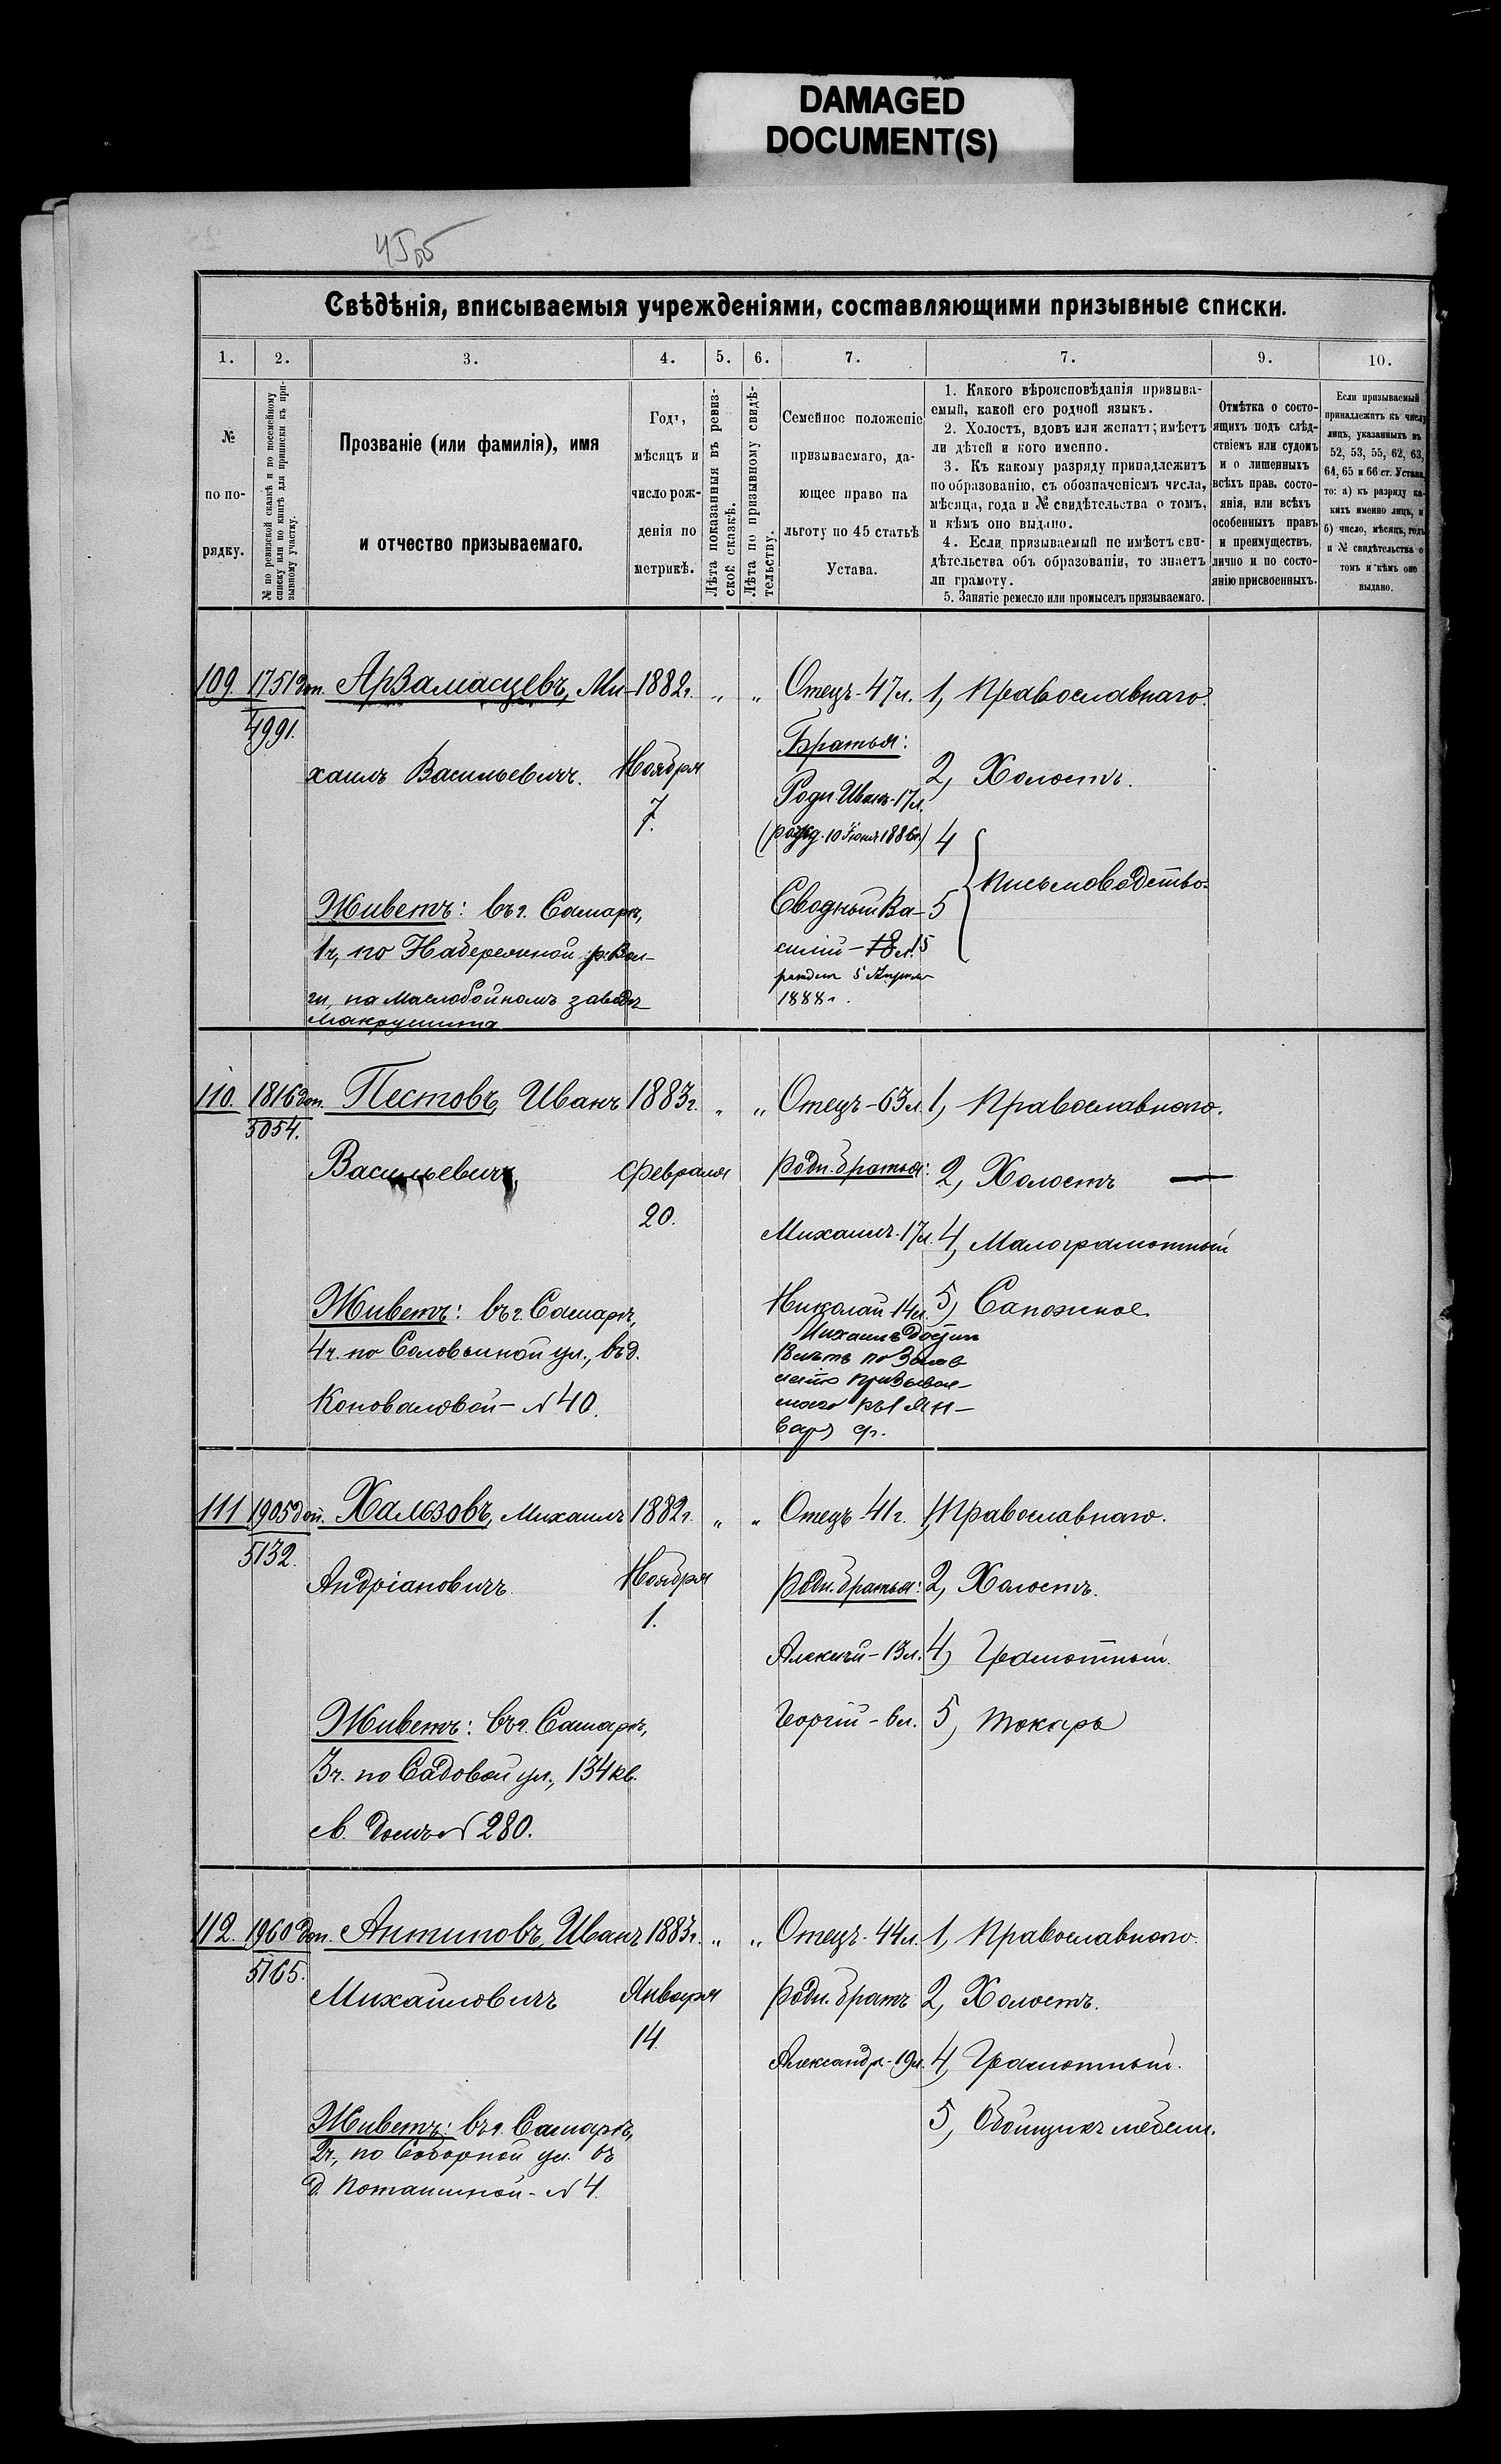 DAMAGED
DOCUMENT(S)
Свѣдѣнія, вписываемыя учрежденіями, составляющими призывные списки.
1. 2. 3. 4. 5. 6. 7. 7. 9. 10.
№
по по-
рядку.
№ по ревизской сказкѣ и по посемейному
списку или по книгѣ для приписки къ при-
зывному участку.
Прозваніе (или фамилія), имя
и отчество призываемаго.
Годъ,
мѣсяцъ и
число рож-
денія по
метрикѣ.
Лѣта показанныя въ ревиз-
ской сказкѣ.
Лѣта по призывному свидѣ-
тельству.
Семейное положеніе
призываемаго, да-
ющее право на
льготу по 45 статьѣ
Устава.
1. Какого вѣроисповѣданія призыва-
емый, какой его родной языкъ.
2. Холостъ, вдовъ или женатъ; имѣетъ
ли дѣтей и кого именно.
3. Къ какому разряду принадлежитъ
по образованію, съ обозначеніемъ числа,
мѣсяца, года и № свидѣтельства о томъ,
и кѣмъ оно выдано.
4. Если призываемый не имѣетъ сви-
дѣтельства объ образованіи, то знаетъ
ли грамоту.
5. Занятіе ремесло или промыселъ призываемаго.
Отмѣтка о состо-
ящихъ подъ слѣд-
ствіемъ или судомъ
и о лишенныхъ
всѣхъ прав. состо-
янія, или всѣхъ
особенныхъ правъ
и преимуществъ,
лично и по состо-
янію присвоенныхъ.
Если призываемый
принадлежитъ къ числу
лицъ, указанныхъ въ
52, 53, 55, 62, 63,
64, 65 и 66 ст. Устава,
то: а) къ разряду ка-
кихъ именно лицъ, и
б) число, мѣсяцъ, годъ
и № свидѣтельства о
томъ и кѣмъ оно
выдано.
109. 1751 доп. Арзамасцевъ, Ми- 1882г. „ „ Отецъ - 47л. 1, Православнаго.
4991.
Братья:
хаилъ Васильевичъ. Ноября 2, Холостъ.
7. Родн Иванъ - 17л.
(рожд. 10 Іюня 1886г.) 4
Письмоводство.
Живетъ: въ г. Самарѣ, Сводный Ва- 5
1ч, по Набережной р. Вол- силій - 18л. 15
ги, на маслобойномъ заводѣ рожден 5 Апреля
1888г.
110. 1816 доп. Пестовъ, Иванъ 1883г. „ „ Отецъ - 63л. 1, Православнаго.
5054.
Васильевичъ, Февраля родн. братья: 2, Холостъ
20. Михаилъ - 17л. 4, Малограмотный
Живетъ: въ г. Самарѣ, Николай - 14л. 5) Сапожное
4ч. по Соловьиной ул., въ д.
Коноваловой - № 40.
111 1905 доп. Хальзовъ, Михаилъ 1882г. „ „ Отецъ - 41г. 1, Православнаго.
5132.
Андріановичъ Ноября родн. братья: 2, Холостъ.
1.
Алексѣй - 13л. 4) Грамотный.
Живетъ: въ г. Самарѣ, Георгій - 6л. 5, токарь
3ч. по Садовой ул., 134 кв.
св. домъ № 280.
112. 1960 доп. Антиповъ, Иванъ 1883г. „ „ Отецъ - 44л. 1, Православнаго.
5165.
Михайловичъ Января родн. братъ 2, Холостъ.
14.
Александр - 19л. 4, Грамотный.
Живетъ: въ г. Самарѣ, 5, Обойщикъ мебели.
2ч., по Соборной ул. въ
д. Поташиной - № 4.